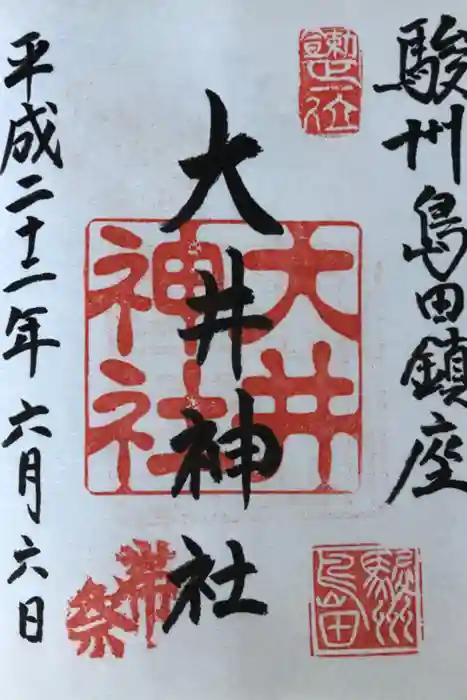 駿州島田鎮座
大井神社
大井
神社
帯祭
駿州
島田
平成二十二年六月六日